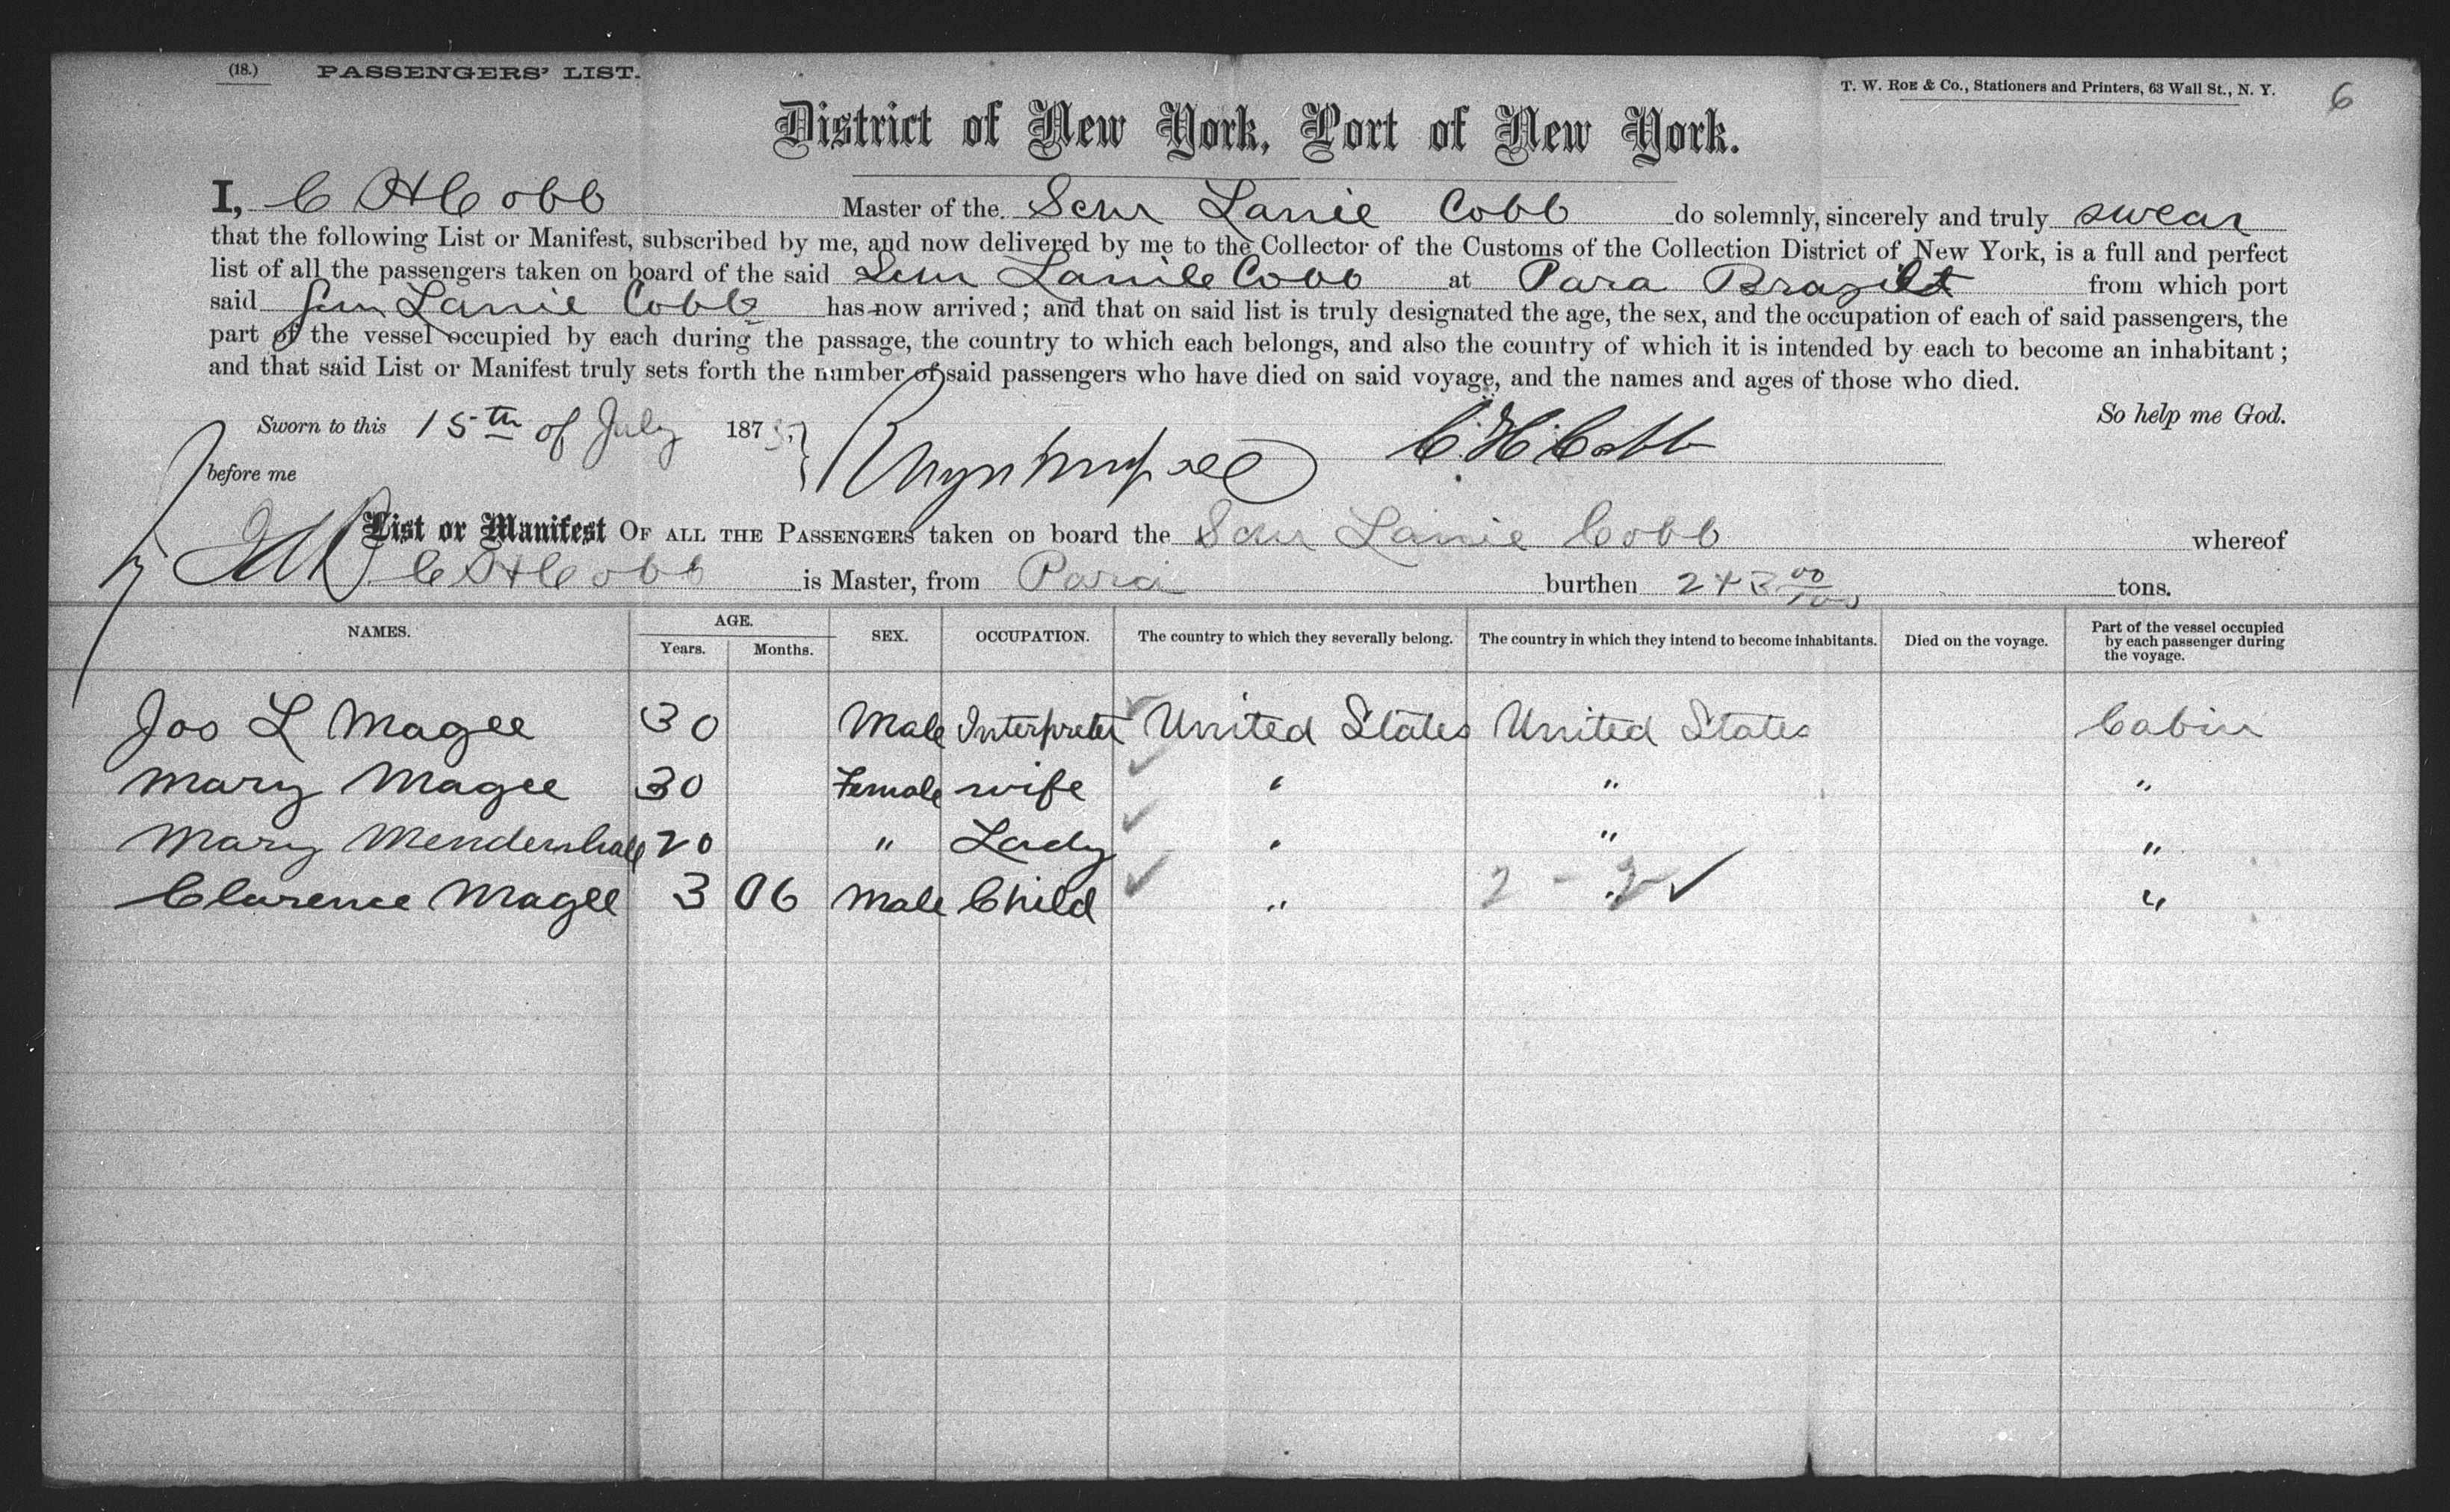 (18.) PASSENGERS' LIST.
T. W. ROE & Co., Stationers and Printers, 63 Wall St., N. Y.
6
District of New York, Port of New York.
I, C H Cobb Master of the Schr Lanie Cobb do solemnly, sincerely and truly swear
that the following List or Manifest, subscribed by me, and now delivered by me to the Collector of the Customs of the Collection District of New York, is a full and perfect
list of all the passengers taken on board of the said Schr Lanie Cobb at Para Brazil from which port
said Schr Lanie Cobb has now arrived; and that on said list is truly designated the age, the sex, and the occupation of each of said passengers, the
part of the vessel occupied by each during the passage, the country to which each belongs, and also the country of which it is intended by each to become an inhabitant;
and that said List or Manifest truly sets forth the number of said passengers who have died on said voyage, and the names and ages of those who died.
So help me God.
Sworn to this 15th of July 1875,
C. H. Cobb
before me
List or Manifest OF ALL THE PASSENGERS taken on board the Schr Lanie Cobb whereof
C H Cobb is Master, from Para burthen 243 00/100 tons.
NAMES. AGE. Years. Months. SEX. OCCUPATION. The country to which they severally belong. The country in which they intend to become inhabitants. Died on the voyage. Part of the vessel occupied by each passenger during the voyage.
Jos L Magee 30 Male Interpreter United States United States Cabin
Mary Magee 30 Female wife " " "
Mary Mendenhall 20 " Lady " " "
Clarence Magee 3 06 Male Child " 2 - 2 ✓ "